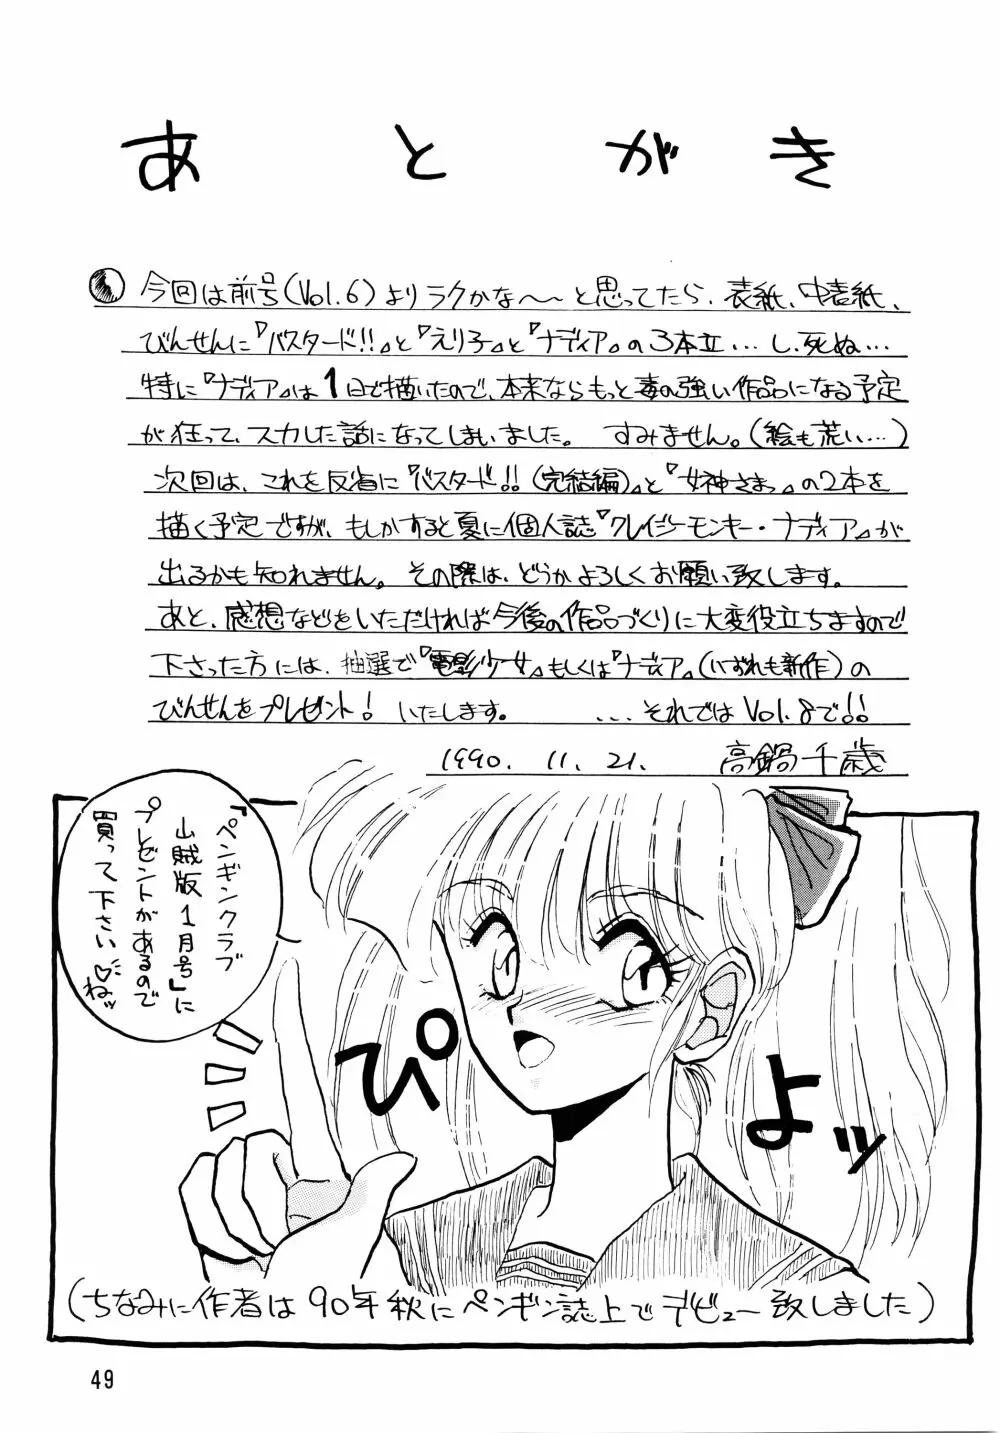 あとがき
今回は前号(Vol.6)よりラクかな〜〜と思ってたら、表紙、中表紙、
びんせんに『バスタード!!』と『えり子』と『ナディア』の3本立…し、死ぬ…
特に『ナディア』は1日で描いたので、本来ならもっと毒の強い作品になる予定
が狂って、スカした話になってしまいました。 すみません。(絵も荒い…)
次回は、これを反省に『バスタード!!(完結編)』と『女神さまっ』の2本を
描く予定ですが、もしかすると夏に個人誌『クレイジーモンキー・ナディア』が
出るかも知れません。その際は、どうかよろしくお願い致します。
あと、感想などをいただければ今後の作品づくりに大変役立ちますので
下さった方には、抽選で『電影少女』もしくは『ナディア』(いずれも新作)の
びんせんをプレゼント! いたします。 …それではVol.8で!!
1990. 11. 21. 高鍋千歳
『ペンギンクラブ
山賊版1月号』に
プレゼントがあるので
買って下さい♡ねッ
ぴ
よッ
(ちなみに作者は90年秋にペンギン誌上でデビュー致しました)
49